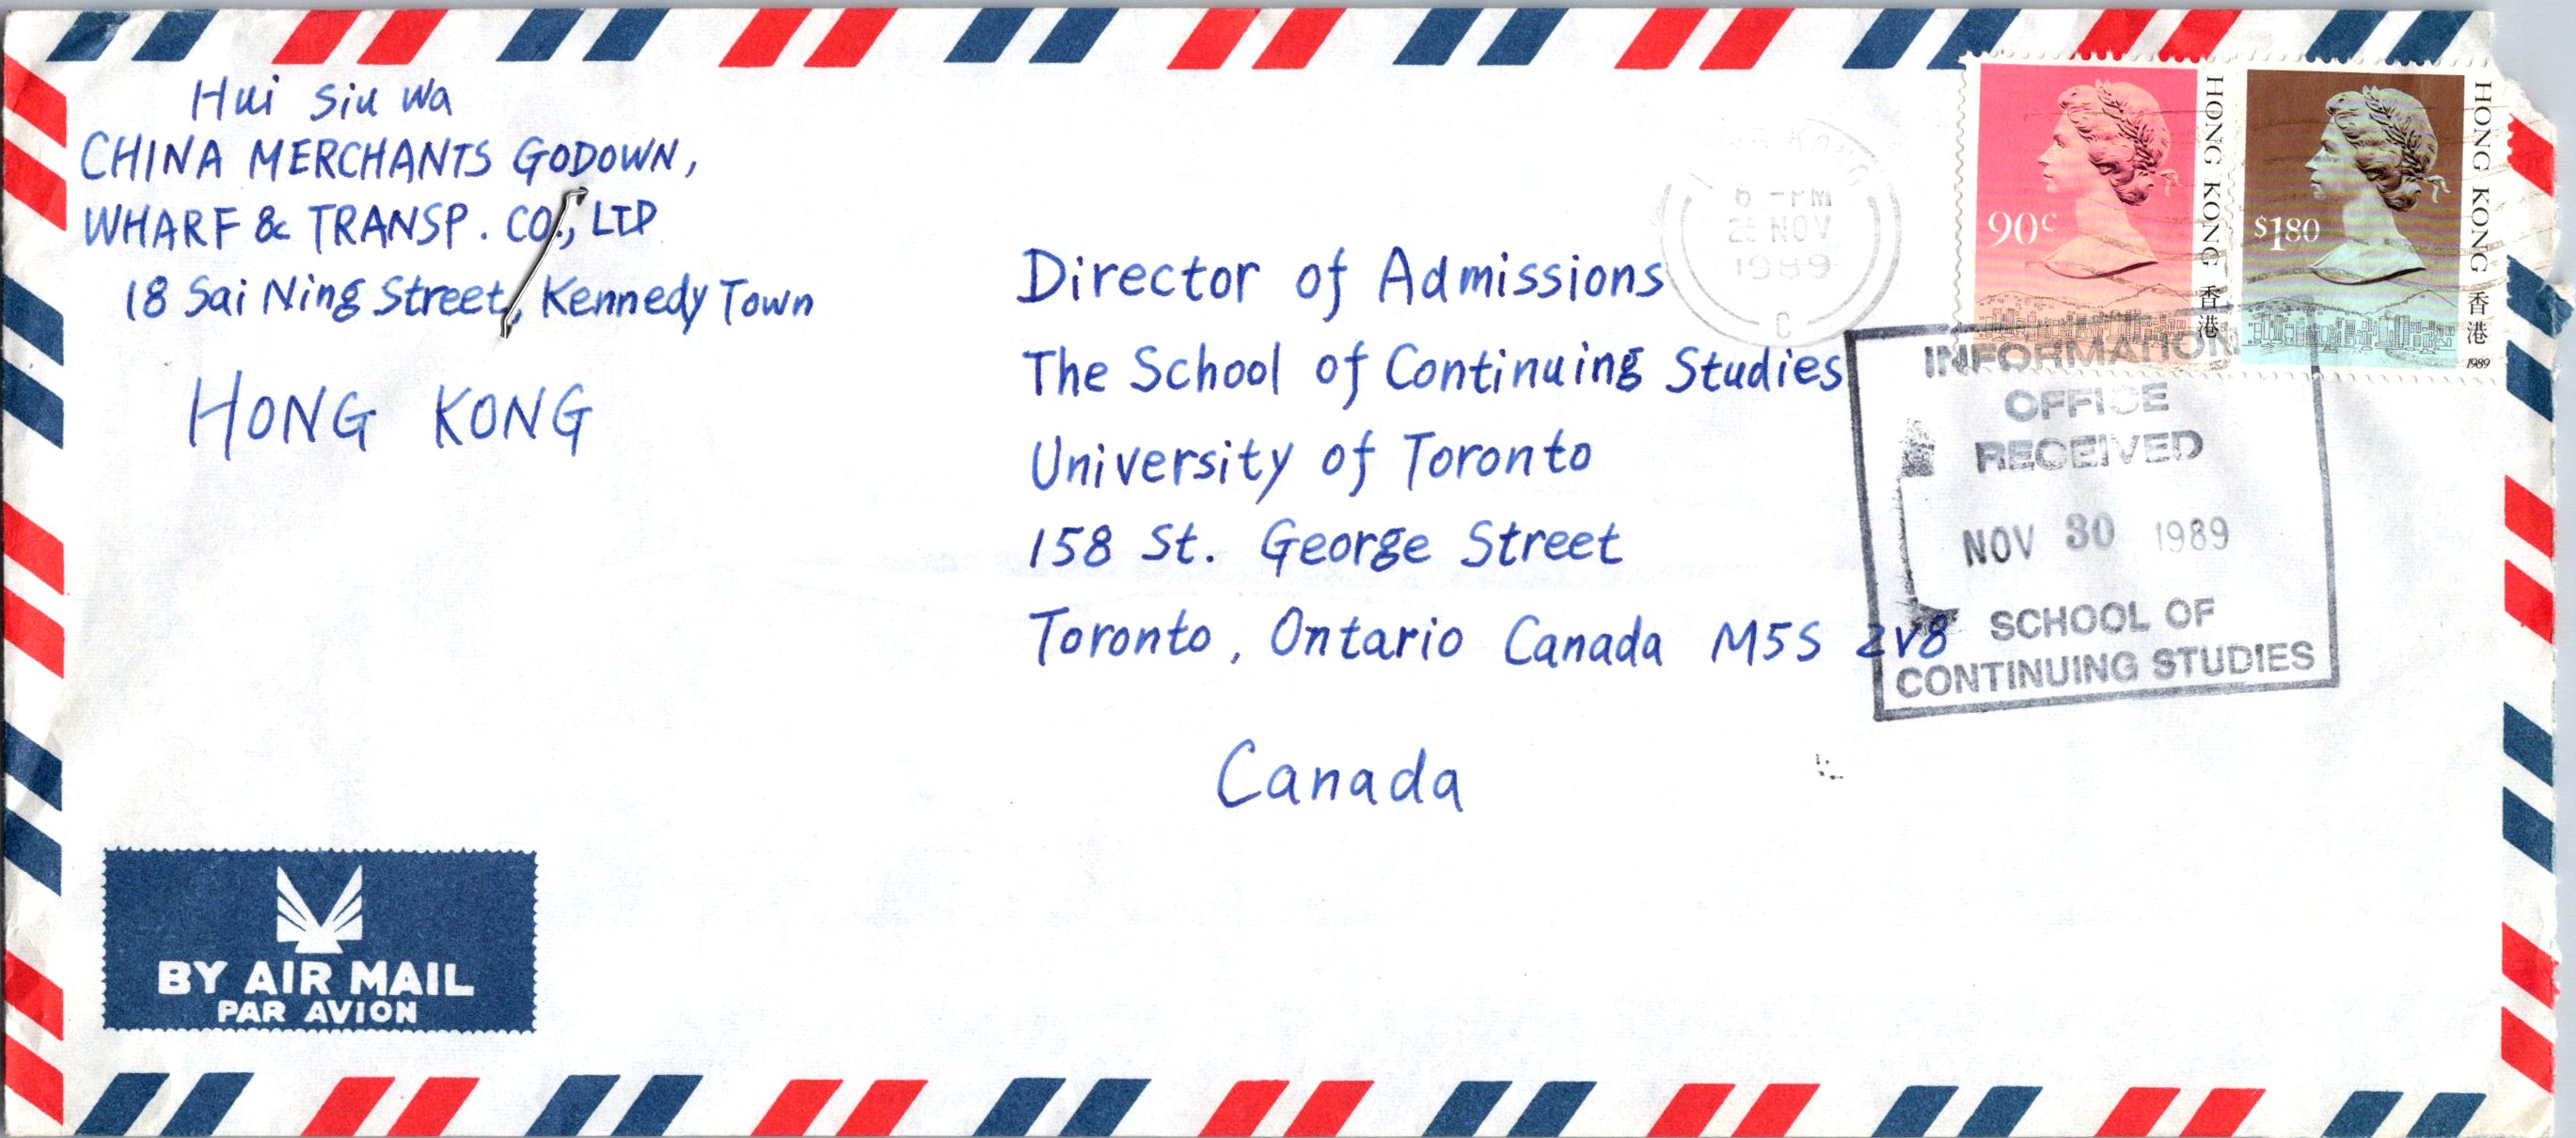 Hui Siu Wa
CHINA MERCHANTS GODOWN,
WHARF & TRANSP. CO., LTD
18 Sai Ning Street, Kennedy Town
HONG KONG
Director of Admissions
The School of Continuing Studies
University of Toronto
158 St. George Street
Toronto, Ontario Canada M5S 2V8
Canada
KONG
6 -PM
NOV
1989
C
90c
HONG KONG 香港
$1.80
HONG KONG 香港
1989
INFORMATION
OFFICE
RECEIVED
NOV 30 1989
SCHOOL OF
CONTINUING STUDIES
BY AIR MAIL
PAR AVION